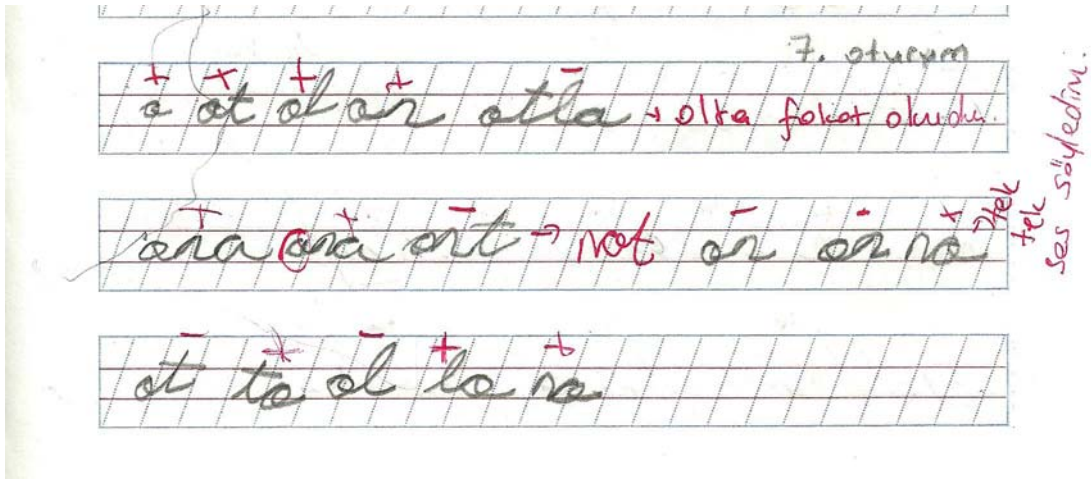 7. oturum
+ + + + -
o ot ol on otla → olta fakat okudu.
+ + - - - +
ona ona ont → not on on no → tek tek ses söyledim.
- + - + +
ot to ol lo no